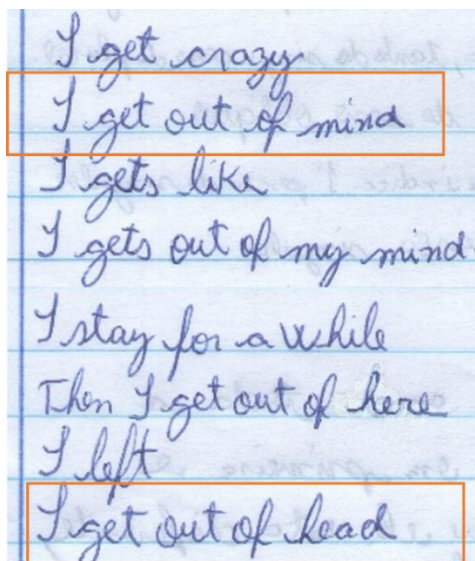 I get crazy
I get out of mind
I gets like
I gets out of my mind
I stay for a while
Then I get out of here
I left
I get out of head